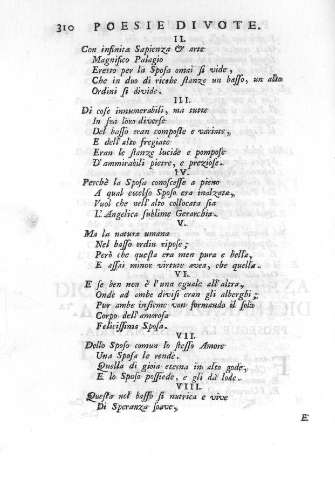 310 POESIE DIVOTE.
II.
Con infinita Sapienza & arte
Magnifico Palagio
Eretto per la Sposa omai si vide,
Che in duo di ricche stanze un basso, un alto
Ordini si divide.
III.
Di cose innumerabili, ma tutte
In fra loro diverse
Del basso eran composte e variate,
E dell'alto fregiate
Eran le stanze lucide e pompose
D'ammirabili pietre, e preziose.
IV.
Perchè la Sposa conoscesse a pieno
A qual eccelso Sposo era inalzata,
Vuol che nell'alto collocata sia
L'Angelica sublime Gerarchia.
V.
Ma la natura umana
Nel basso ordin ripose;
Però che questa era men pura e bella,
E assai minor virtute avea, che quella.
VI.
E se ben non è l'una eguale all'altra,
Onde ad ambe divisi eran gli alberghi;
Pur ambe insieme van formando il solo
Corpo dell'amorosa
Felicissima Sposa.
VII.
Dello Sposo comun lo stesso Amore
Una Sposa le rende.
Quella di gioia eterna in alto gode,
E lo Sposo possiede, e gli dà lode.
VIII.
Questa nel basso si nutrica e vive
Di Speranza soave,
E